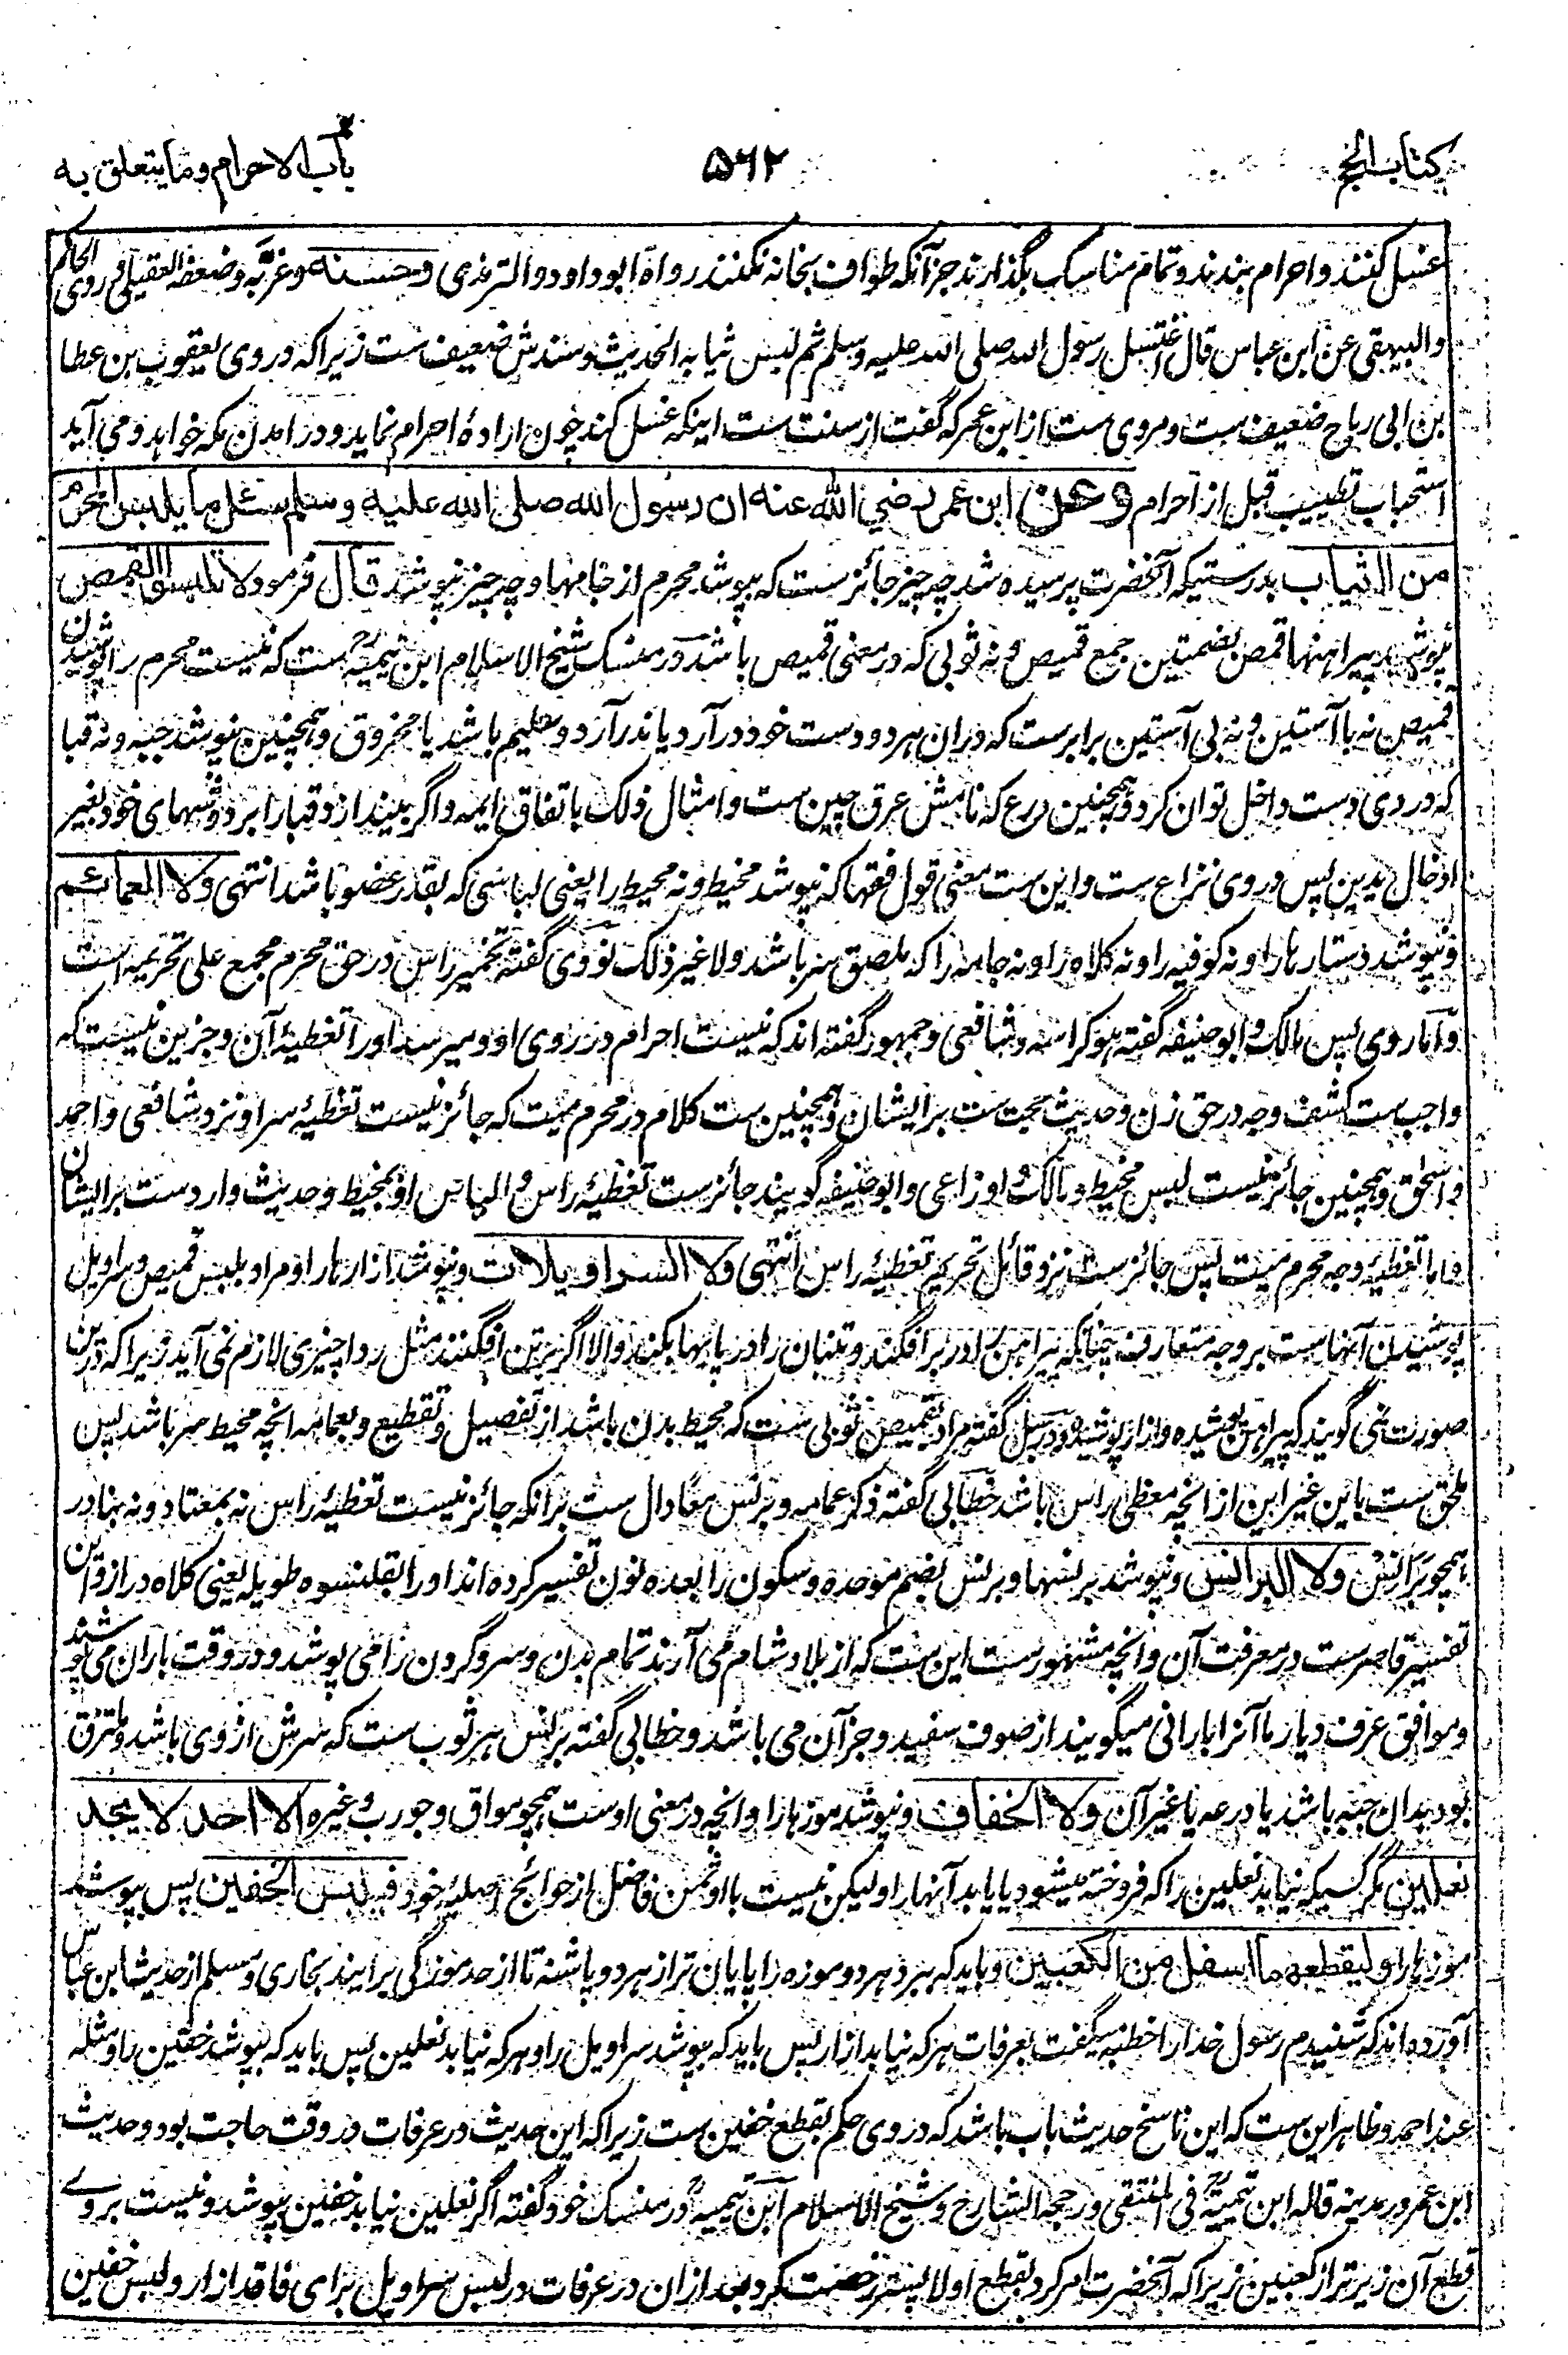 کتاب الحج
۵۶۲
باب الاحرام وما یتعلق به
غسل کنند و احرام بندند و تمام مناسک بگذارند جز آنکه طواف بخانه نکنند رواه ابو داود والترمذی وحسنه وغربه وضعفه العقیلی وروی الحاکم
والبیهقی عن ابن عباس قال اغتسل رسول الله صلی الله علیه وسلم ثم لبس ثیابه الحدیث وسندش ضعیف ست زیرا که در وی یعقوب بن عطا
بن ابی رباح ضعیف ست و مروی ست از ابن عمر که گفت از سنت ست اینکه غسل کند چون ارادهٔ احرام نماید و در آمدن مکه خواهد و می آید
استحباب تطییب قبل از احرام وعن ابن عمر رضي الله عنه ان رسول الله صلى الله عليه وسلم سئل ما يلبس المحرم
من الثياب بدرستیکه آنحضرت پرسیده شد چه چیز جائزست که بپوشد محرم از جامها و چه چیز نپوشد قال فرمود لا تلبسوا القمص
نپوشید پیراهنها قمص بضمتین جمع قمیص و نه ثوبی که در معنی قمیص باشد و در منسک شیخ الاسلام ابن تیمیه رح ست که نیست محرم را پوشیدن
قمیص نه با آستین و نه بی آستین برابرست که در ان هر دو دست خود در آرد یا ندر آرد و سلیم باشد یا مخروق و همچنین نپوشد جبه و نه قبا
که در وی دست داخل توان کرد و همچنین درع که نامش عرق چین ست و امثال ذلک باتفاق ایمه و اگر بیندازد قبا را بر دوشهای خود بغیر
ادخال یدین پس در وی نزاع ست و این ست معنی قول فقها که نپوشد مخیط و نه محیط را یعنی لباسی که بقدر عضو باشد انتهی ولا العمائم
و نپوشد دستارها را و نه کوفیه را و نه کلاه را و نه جامه را که ملصق سر باشد ولا غیر ذلک نووی گفته تخمیر راس در حق محرم مجمع علی تحریمه است
و اما روی پس مالک و ابو حنیفه گفته هو کراسه و شافعی و جمهور گفته اند که نیست احرام در روی او و میرسد او را تغطیهٔ آن و جزین نیست که
واجب ست کشف وجه در حق زن و حدیث حجت ست بر ایشان و همچنین ست کلام در محرم میت که جائز نیست تغطیهٔ سر او نزد شافعی و احمد
و اسحق و همچنین جائز نیست لبس مخیط و مالک و اوزاعی و ابو حنیفه گویند جائزست تغطیهٔ راس و الباس او بمخیط و حدیث واردست بر ایشان
و اما تغطیهٔ وجه محرم میت پس جائزست نزد قائل تحریم تغطیهٔ راس انتهی ولا السراويلات و نپوشد ازارها را و مراد بلبس قمیص و سراویل
پوشیدن آنهاست بر وجه متعارف چنانکه پیراهن را در بر افگند و تنبان را در پایها بکند والا اگر بر تن افگنند مثل ردا چیزی لازم نمی آید زیرا که درین
صورت نمی گویند که پیراهن پوشیده و ازار پوشیده و در سبل گفته مراد بقمیص ثوبی ست که محیط بدن باشد از تفصیل و تقطیع و بعمامه انچه محیط سر باشد پس
ملحق ست باین غیر این از انچه مغطی راس باشد خطابی گفته ذکر عمامه و برنس معا دال ست برانکه جائز نیست تغطیهٔ راس نه بمعتاد و نه بنادر
همچو برانس ولا البرانس و نپوشد برنسها و برنس بضم موحده و سکون را بعده نون تفسیر کرده اند او را بقلنسوه طویله یعنی کلاه دراز و این
تفسیر قاصرست در معرفت آن و انچه مشهورست این ست که از بلاد شام می آرند تمام بدن و سر و گردن را می پوشد و در وقت باران می پوشند
و موافق عرف دیار ما آنرا بارانی میگویند از صوف سفید و جز آن می باشد و خطابی گفته برنس هر ثوب ست که سرش از وی باشد و ملتزق
بود بدان جبه باشد یا درعه یا غیر آن ولا الخفاف و نپوشد موزها را و انچه در معنی اوست همچو مواق و جورب و غیره الا احد لا يجد
نعلين مگر کسیکه نیابد نعلین را که فروخته میشود یا یابد آنها را و لیکن نیست با او ثمن فاضل از حوائج اصلیهٔ خود فيلبس الخفين پس بپوشد
موزها را وليقطعهما اسفل من الكعبين و باید که ببرد هر دو موزه را پایان تر از هر دو پاشنه تا از حد موزگی برایند بخاری و مسلم از حدیث ابن عباس
آورده اند که شنیدم رسول خدا را خطبه میگفت بعرفات هر که نیابد ازار پس باید که بپوشد سراویل را و هر که نیابد نعلین پس باید که بپوشد خفین را و مثله
عند احمد و ظاهر این ست که این ناسخ حدیث باب باشد که در وی حکم بقطع خفین ست زیرا که این حدیث در عرفات در وقت حاجت بود و حدیث
ابن عمر در مدینه قاله ابن تیمیه فی المنتقی ورجحه الشارح و شیخ الاسلام ابن تیمیه در منسک خود گفته اگر نعلین نیابد خفین بپوشد و نیست بروے
قطع آن زیرتر از کعبین زیرا که آنحضرت امر کرد بقطع اولا پستر رخصت کرد بعد ازان در عرفات در لبس سراویل برای فاقد ازار و لبس خفین